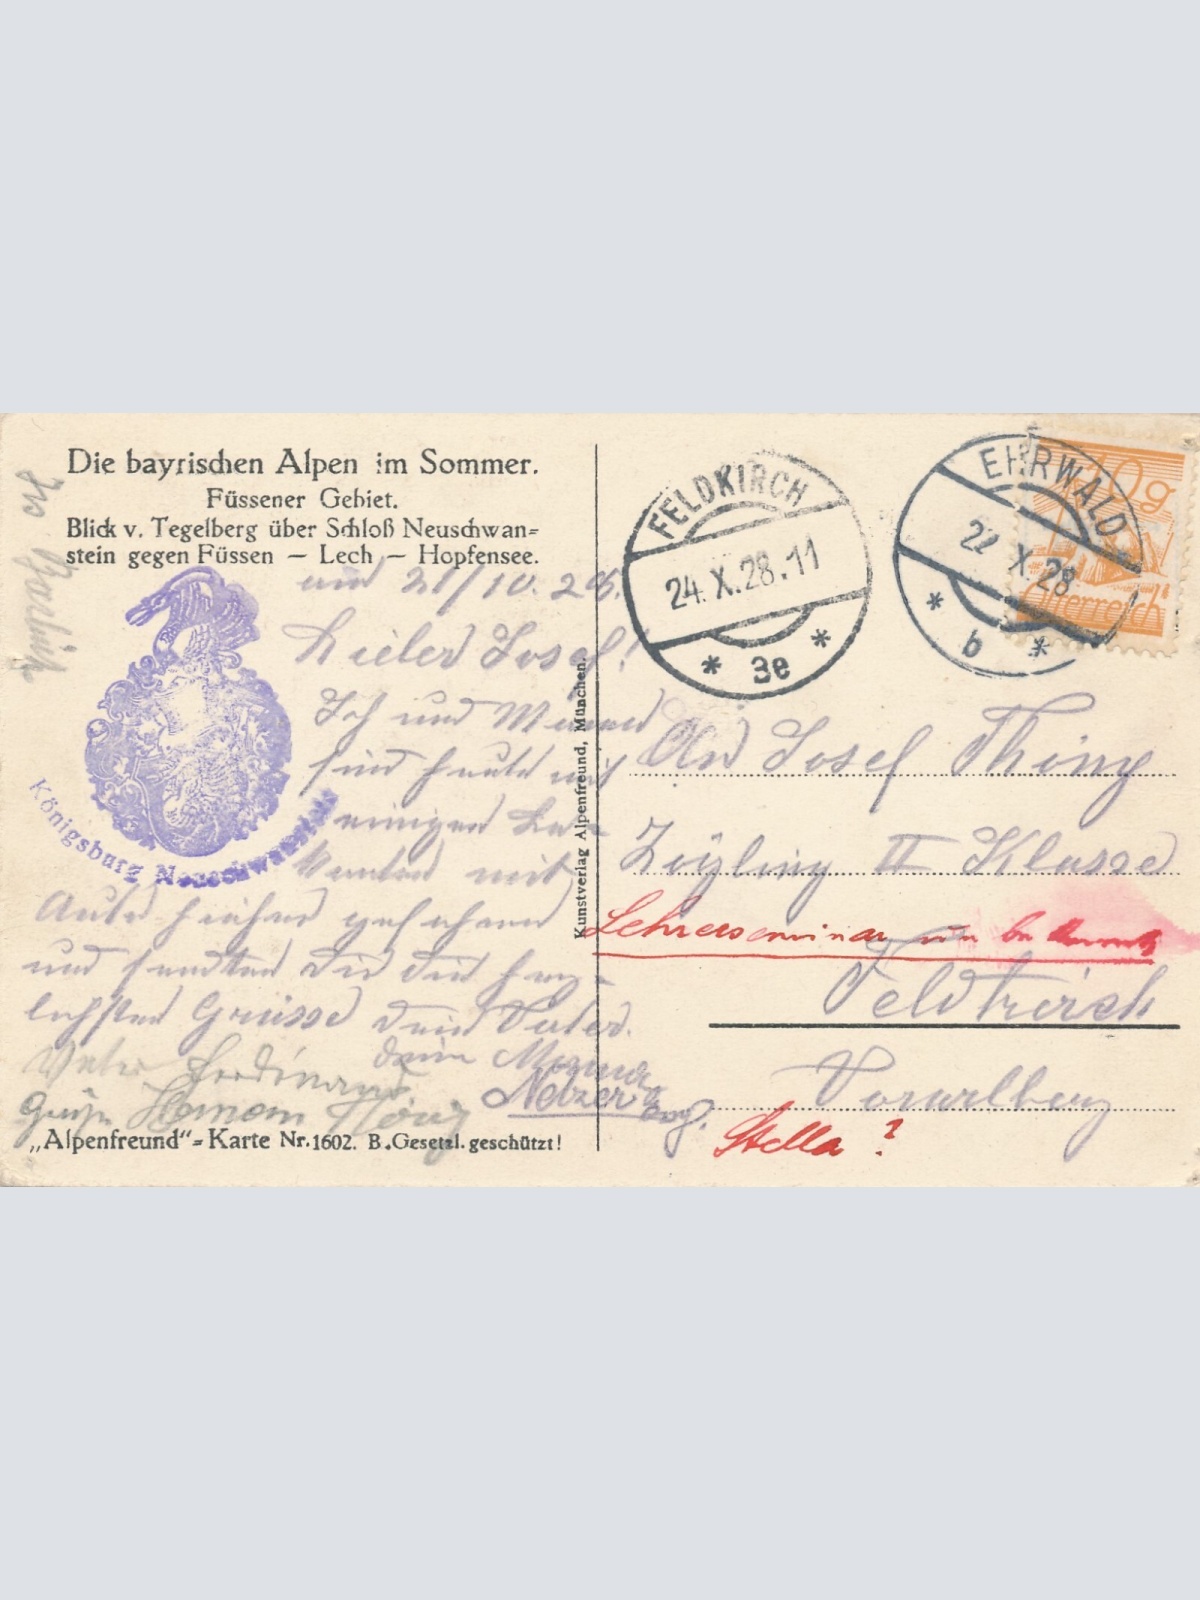 Die bayrischen Alpen im Sommer.
Füssener Gebiet.
Blick v. Tegelberg über Schloß Neuschwan=
stein gegen Füssen — Lech — Hopfensee.
Königsburg Neuschwanstein
am 21/10. 28.
Lieber Josef!
Ich und
sind heute mit
einigen Be-
kannten mit
Auto hieher gefahren
und senden Dir die herz-
lichsten Grüsse dein Vater.
Ferdinand
deine
Netzer
Grüße Hermann
„Alpenfreund"=Karte Nr. 1602. B. Gesetzl. geschützt!
Kunstverlag Alpenfreund, München.
FELDKIRCH
24.X.28.11
* 3e *
EHRWALD
22.X.28
* b *
10 g
Österreich
An Josef Thöny
Zögling II Klasse
Lehrerseminar
Feldkirch
Vorarlberg
Stella ?